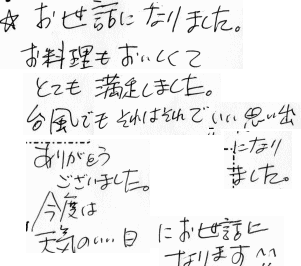 ☆ お世話になりました。
お料理もおいしくて
とても満足しました。
台風でもそれはそれでいい思い出
になり
ました。
ありがとう
ございました。
今度は
天気のいい日
にお世話に
なります^^